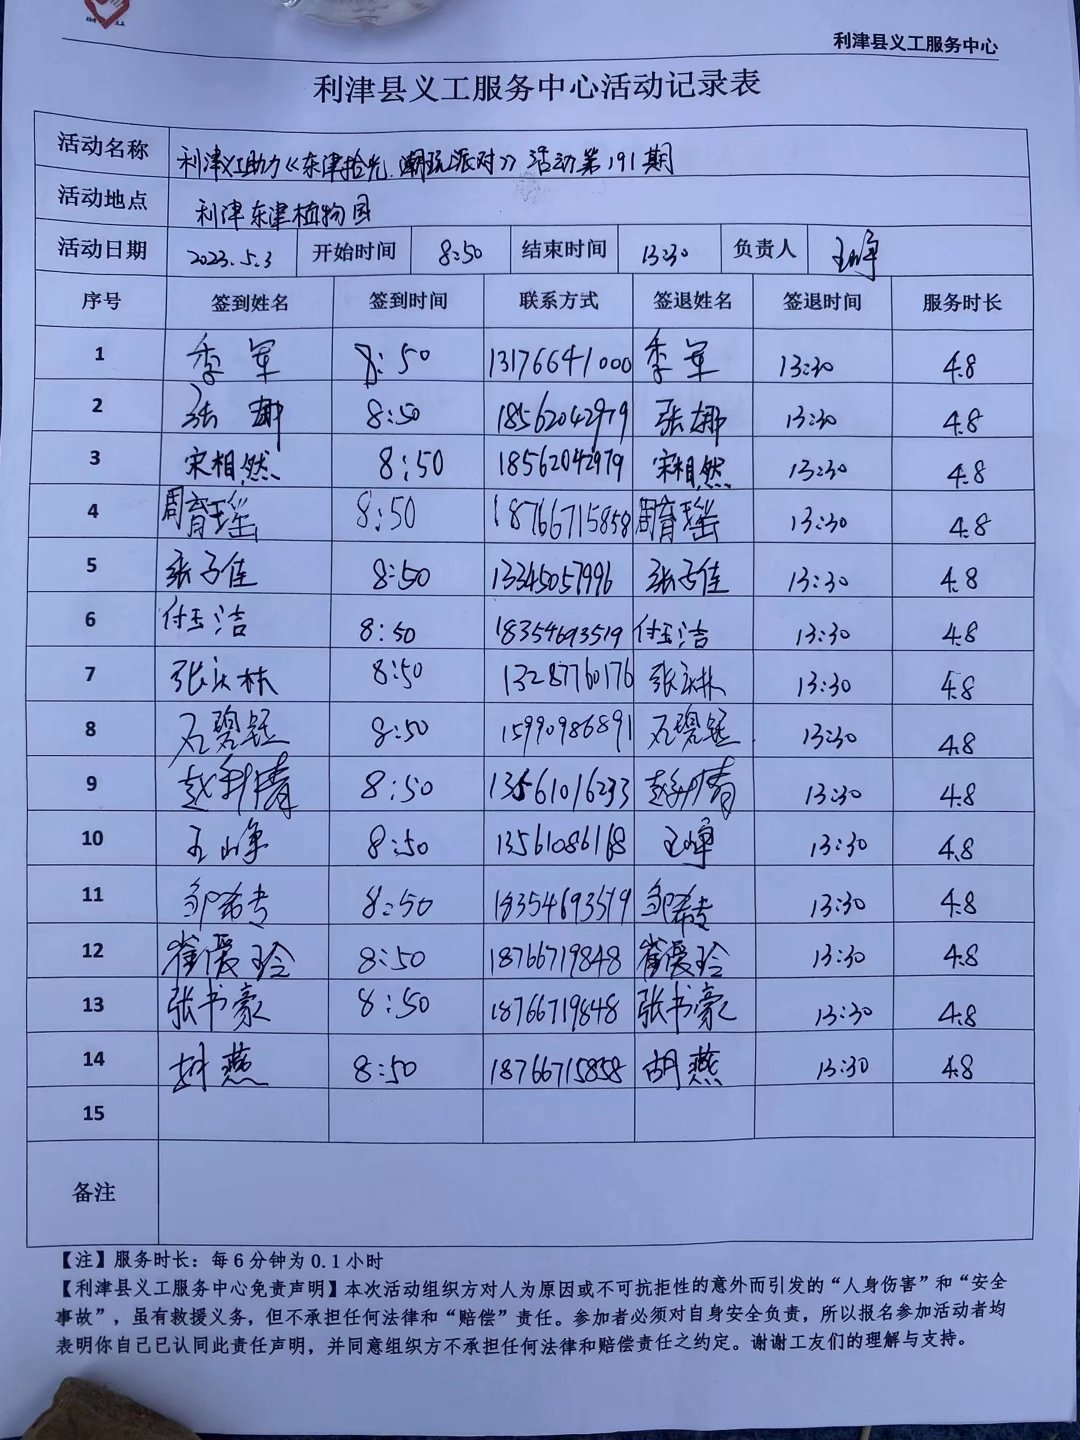 利津县义工服务中心
利津县义工服务中心活动记录表
活动名称 利津义工助力《东津拾光.潮玩派对》活动第191期
活动地点 利津东津植物园
活动日期 2023.5.3 开始时间 8:50 结束时间 13:30 负责人 王峥
序号 签到姓名 签到时间 联系方式 签退姓名 签退时间 服务时长
1 季军 8:50 13176641000 季军 13:30 4.8
2 张娜 8:50 18562042979 张娜 13:30 4.8
3 宋相然 8:50 18562042979 宋相然 13:30 4.8
4 周育瑶 8:50 18766715858 周育瑶 13:30 4.8
5 张子佳 8:50 13345057996 张子佳 13:30 4.8
6 付玉洁 8:50 18354693519 付玉洁 13:30 4.8
7 张庆林 8:50 13287760176 张庆林 13:30 4.8
8 石碧钰 8:50 15990986891 石碧钰 13:30 4.8
9 赵利倩 8:50 13561016233 赵利倩 13:30 4.8
10 王峥 8:50 13561086168 王峥 13:30 4.8
11 邹希 8:50 18354693519 邹希 13:30 4.8
12 崔爱玲 8:50 18766719848 崔爱玲 13:30 4.8
13 张书豪 8:50 18766719848 张书豪 13:30 4.8
14 胡燕 8:50 18766715858 胡燕 13:30 4.8
15
备注
【注】服务时长：每6分钟为0.1小时
【利津县义工服务中心免责声明】本次活动组织方对人为原因或不可抗拒性的意外而引发的“人身伤害”和“安全
事故”，虽有救援义务，但不承担任何法律和“赔偿”责任。参加者必须对自身安全负责，所以报名参加活动者均
表明你自己已认同此责任声明，并同意组织方不承担任何法律和赔偿责任之约定。谢谢工友们的理解与支持。